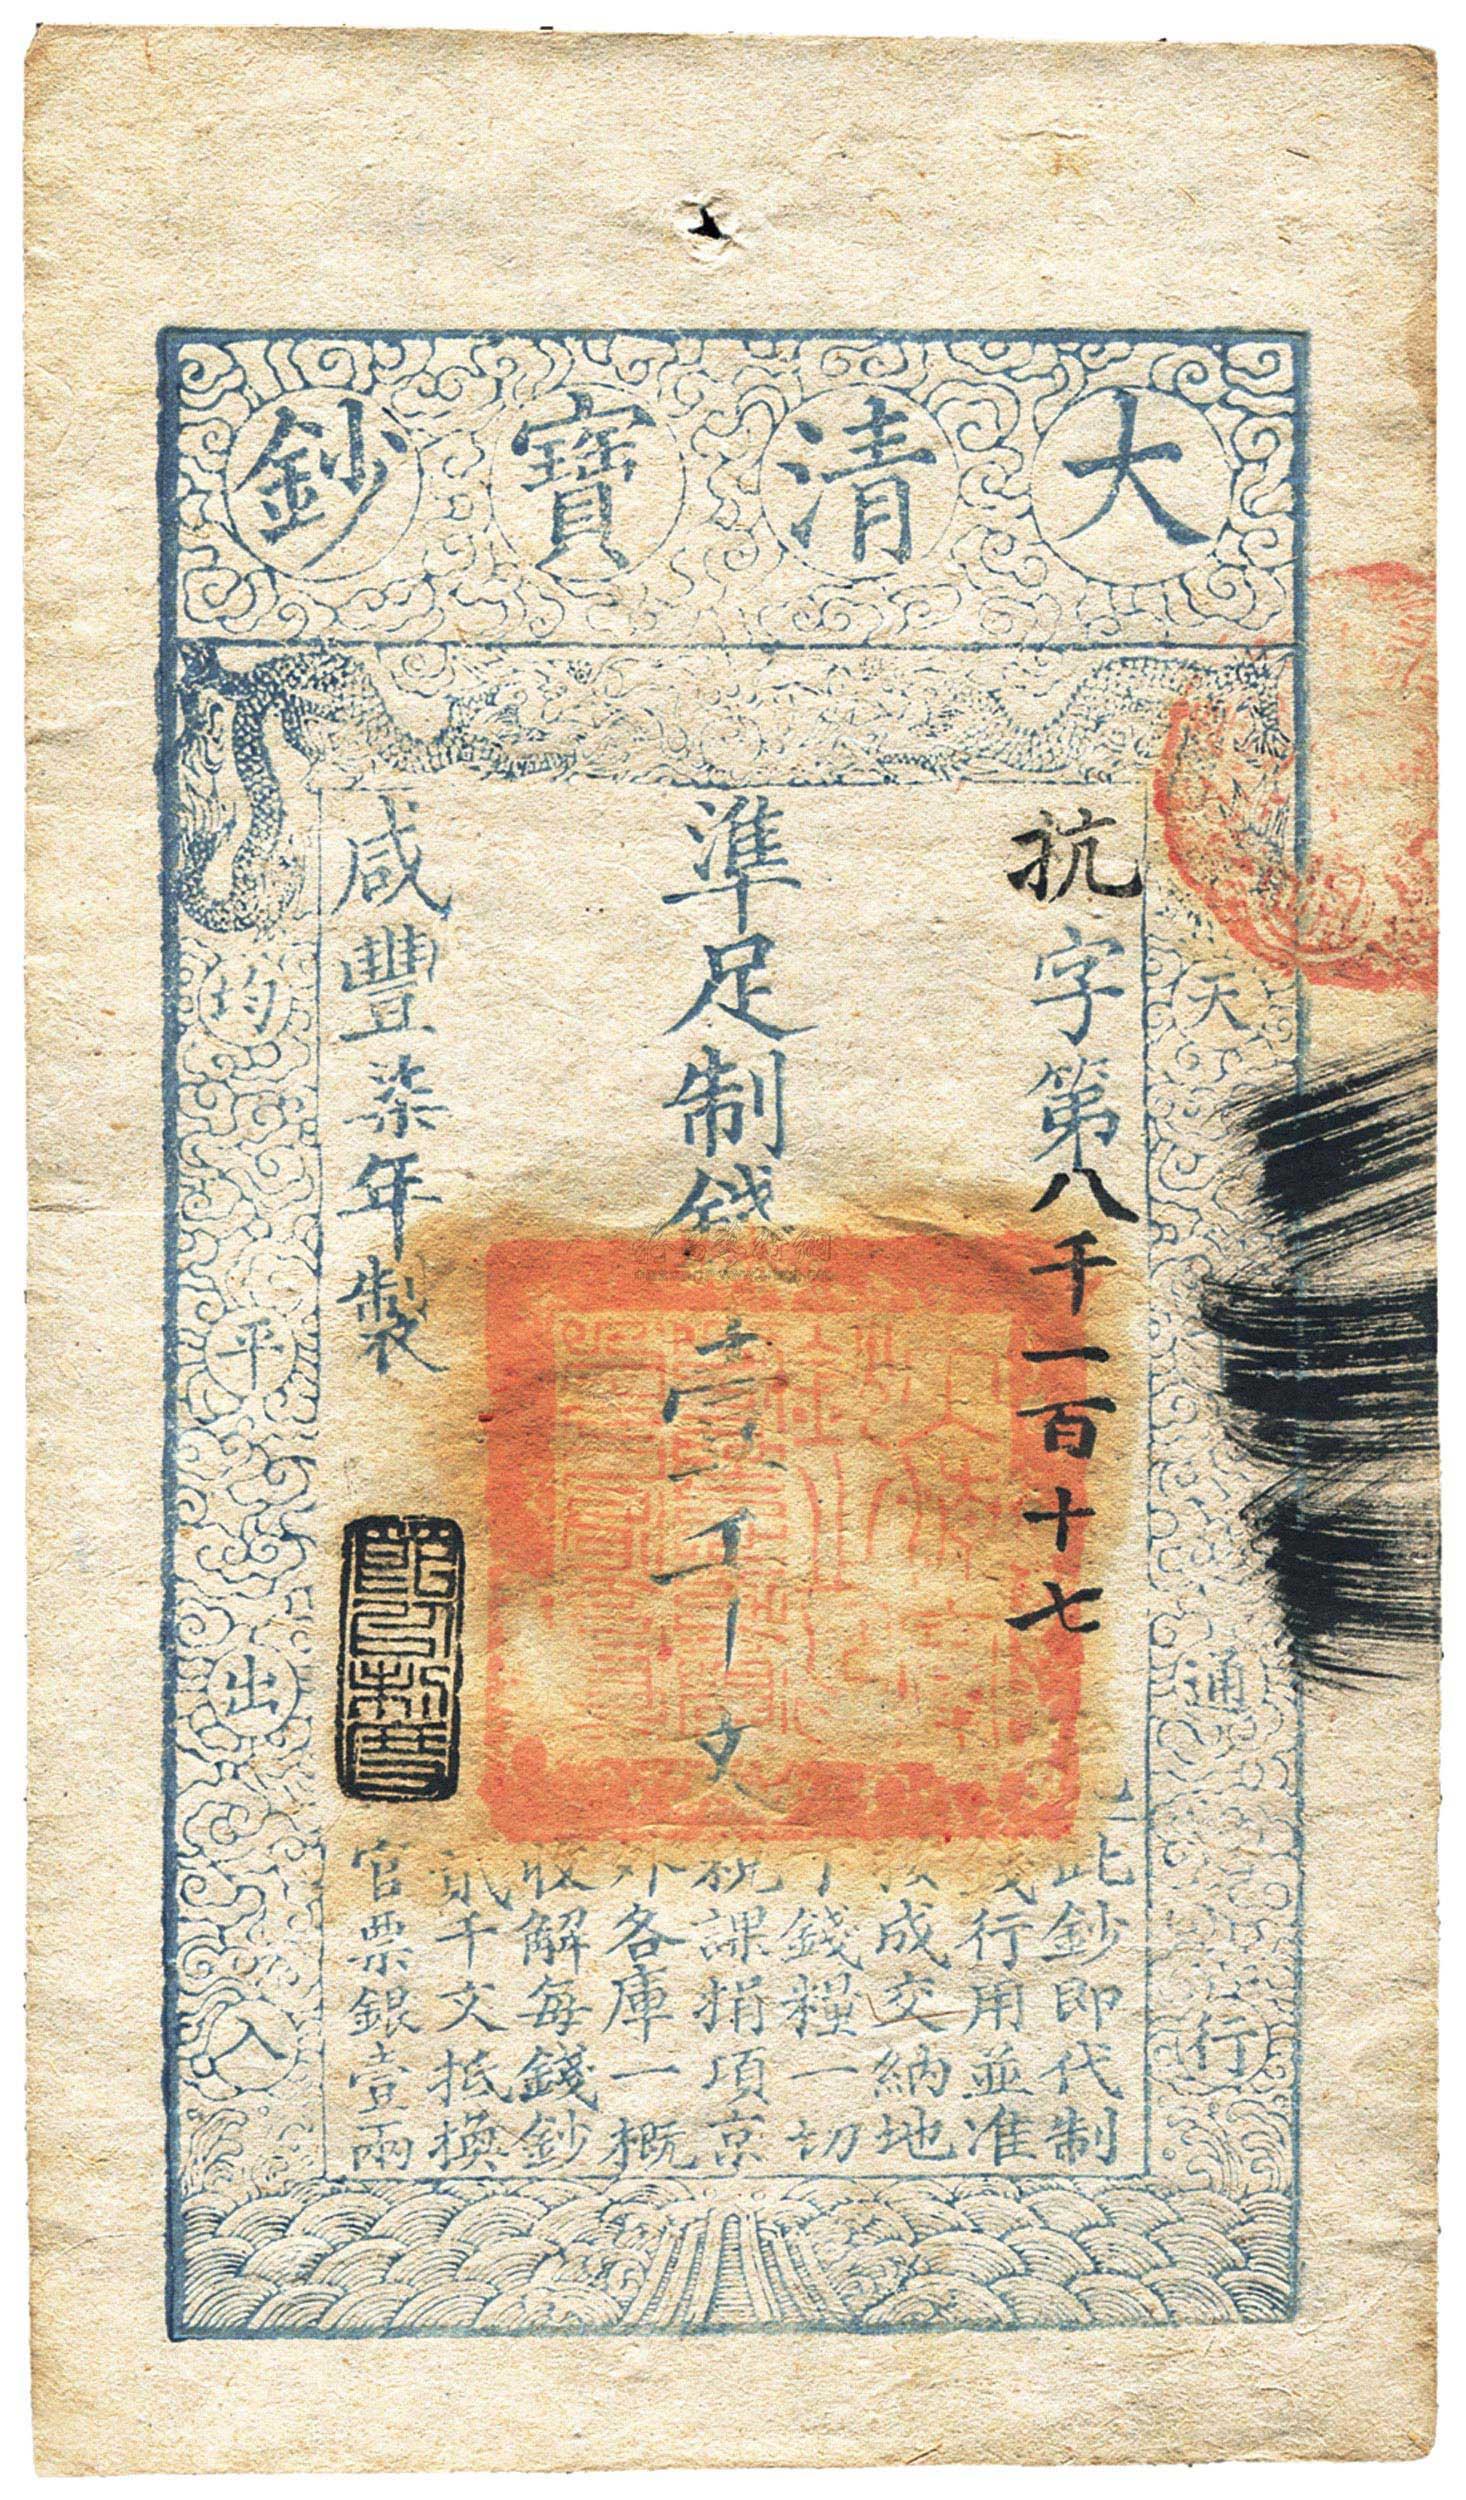 大清寶鈔
天
通行
抗字第八千一百十七
準足制錢壹千文
咸豐柒年製
均平出入
此鈔即代制
錢行用並准
按成交納地
丁錢糧一切
稅課捐項京
外各庫一概
收解每錢鈔
貳千文抵換
官票銀壹兩